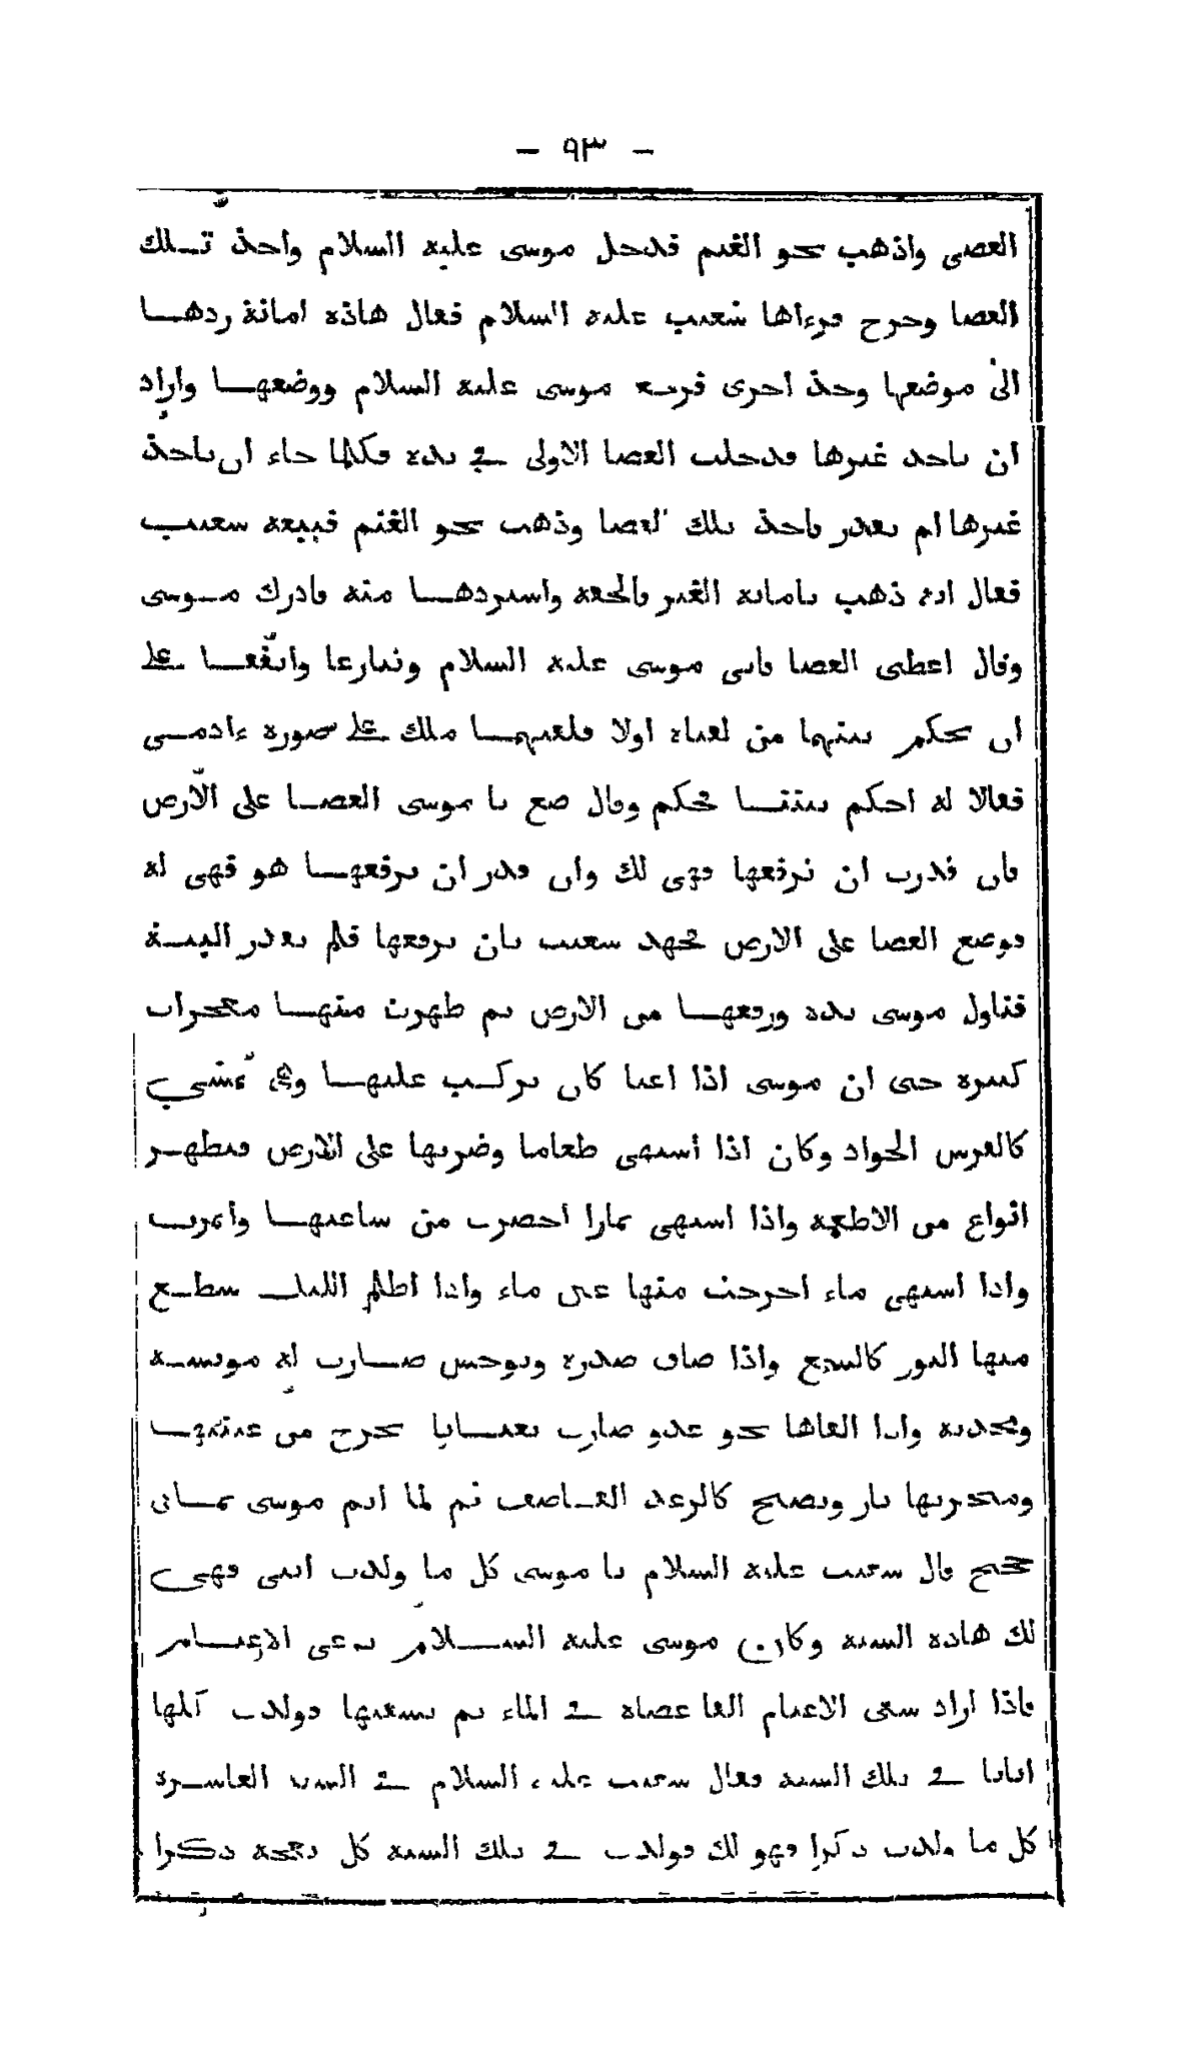 - ٩٣ -
العصى واذهب نحو الغنم فدخل موسى عليه السلام واخذ تلك
العصا وخرج فرءاها شعيب عليه السلام فقال هاذه امانة ردها
الى موضعها وخذ اخرى فرجع موسى عليه السلام ووضعها واراد
ان ياخذ غيرها فدخلت العصا الاولى في يده فكلما جاء ان ياخذ
غيرها لم يقدر فاخذ تلك العصا وذهب نحو الغنم فتبعه شعيب
فقال انه ذهب بامانة الغير فالحقه واستردها منه فادرك موسى
وقال اعطنى العصا فابى موسى عليه السلام وتنازعا واتفقا على
ان يحكم بينهما من لقياه اولا فلقيهما ملك على صورة ءادمى
فقالا له احكم بيننا فحكم وقال ضع يا موسى العصا على الارض
فان قدرت ان ترفعها فهى لك وان قدر ان يرفعها هو فهى له
فوضع العصا على الارض فجهد شعيب بان يرفعها فلم يقدر البتة
فناول موسى يده ورفعها من الارض ثم ظهرت منها معجزات
كثيرة حتى ان موسى اذا اعيا كان يركب عليها وهى تمشي
كالفرس الجواد وكان اذا اشتهى طعاما وضربها على الارض فتظهر
انواع من الاطعمة واذا اشتهى ثمارا احضرت من ساعتها واثمرت
واذا اشتهى ماء اخرجت منها عين ماء واذا اظلم الليل سطع
منها النور كالشمع واذا ضاق صدره وتوحش صارت له مونسة
وتحدثه واذا القاها نحو عدو صارت ثعبانا يخرج من عينيها
ومنخريها نار وتصيح كالرعد القاصف ثم لما اتم موسى ثمانى
حجج قال شعيب عليه السلام يا موسى كل ما ولدت انثى فهى
لك هاذه السنة وكان موسى عليه السلام يرعى الاغنام
فاذا اراد سقى الاغنام القا عصاه في الماء ثم يسقيها فولدت كلها
اناثا في تلك السنة فقال شعيب عليه السلام في السنة العاشرة
كل ما ولدت ذكرا فهو لك فولدت في تلك السنة كل نعجة ذكرا